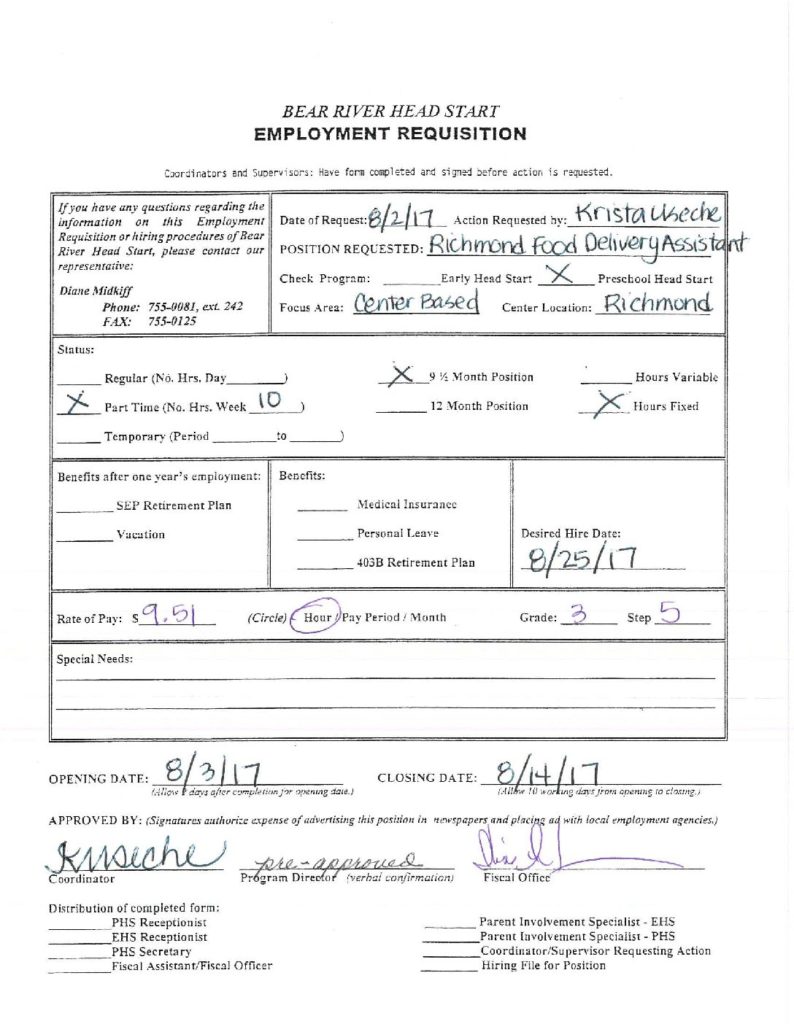 BEAR RIVER HEAD START
EMPLOYMENT REQUISITION
Coordinators and Supervisors: Have form completed and signed before action is requested.
If you have any questions regarding the
information on this Employment
Requisition or hiring procedures of Bear
River Head Start, please contact our
representative:
Diane Midkiff
Phone: 755-0081, ext. 242
FAX: 755-0125
Date of Request: 8/2/17 Action Requested by: Krista Useche
POSITION REQUESTED: Richmond Food Delivery Assistant
Check Program: ______ Early Head Start X Preschool Head Start
Focus Area: Center Based Center Location: Richmond
Status:
______ Regular (No. Hrs. Day ______) X 9 ½ Month Position ______ Hours Variable
X Part Time (No. Hrs. Week 10 ) ______ 12 Month Position X Hours Fixed
______ Temporary (Period ______ to ______)
Benefits after one year's employment:
______ SEP Retirement Plan
______ Vacation
Benefits:
______ Medical Insurance
______ Personal Leave
______ 403B Retirement Plan
Desired Hire Date:
8/25/17
Rate of Pay: $ 9.51 (Circle) Hour / Pay Period / Month Grade: 3 Step 5
Special Needs:
OPENING DATE: 8/3/17 CLOSING DATE: 8/14/17
(Allow days after completion for opening date.) (Allow 10 working days from opening to closing.)
APPROVED BY: (Signatures authorize expense of advertising this position in newspapers and placing ad with local employment agencies.)
KUseche pre-approved
Coordinator Program Director (verbal confirmation) Fiscal Office
Distribution of completed form:
______ PHS Receptionist
______ EHS Receptionist
______ PHS Secretary
______ Fiscal Assistant/Fiscal Officer
______ Parent Involvement Specialist - EHS
______ Parent Involvement Specialist - PHS
______ Coordinator/Supervisor Requesting Action
______ Hiring File for Position